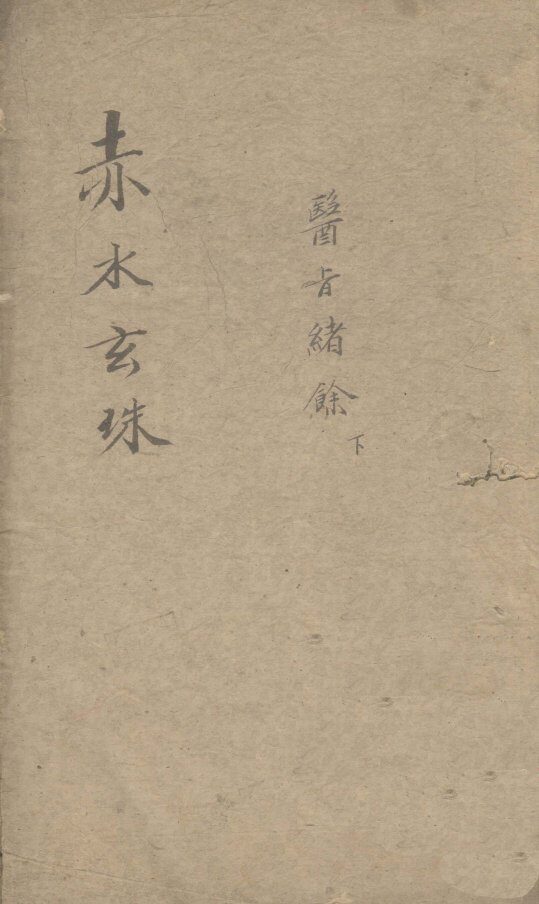 醫旨緒餘
下
赤水玄珠